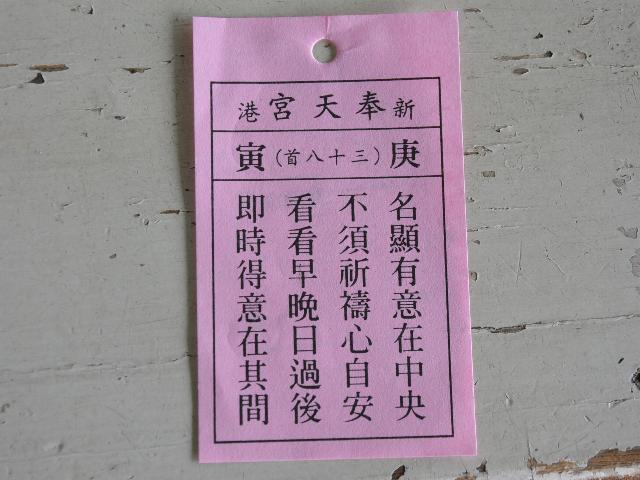 新奉天宮港
庚(三十八首)寅
名顯有意在中央
不須祈禱心自安
看看早晚日過後
即時得意在其間